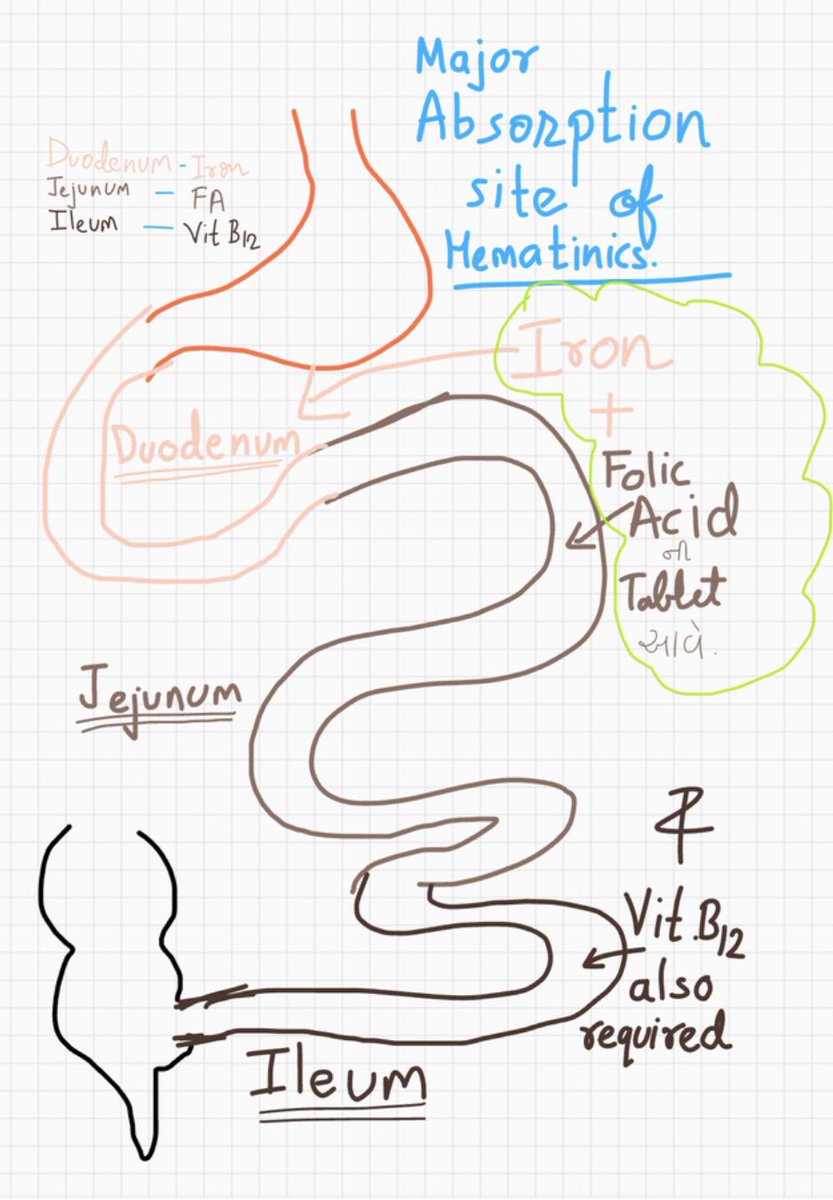 Major
Absorption
site of
Hematinics.
Duodenum - Iron
Jejunum — FA
Ileum — Vit B12
Iron
+
Folic
Acid
ની
Tablet
આવે.
Duodenum
Jejunum
&
Vit. B12
also
required
Ileum